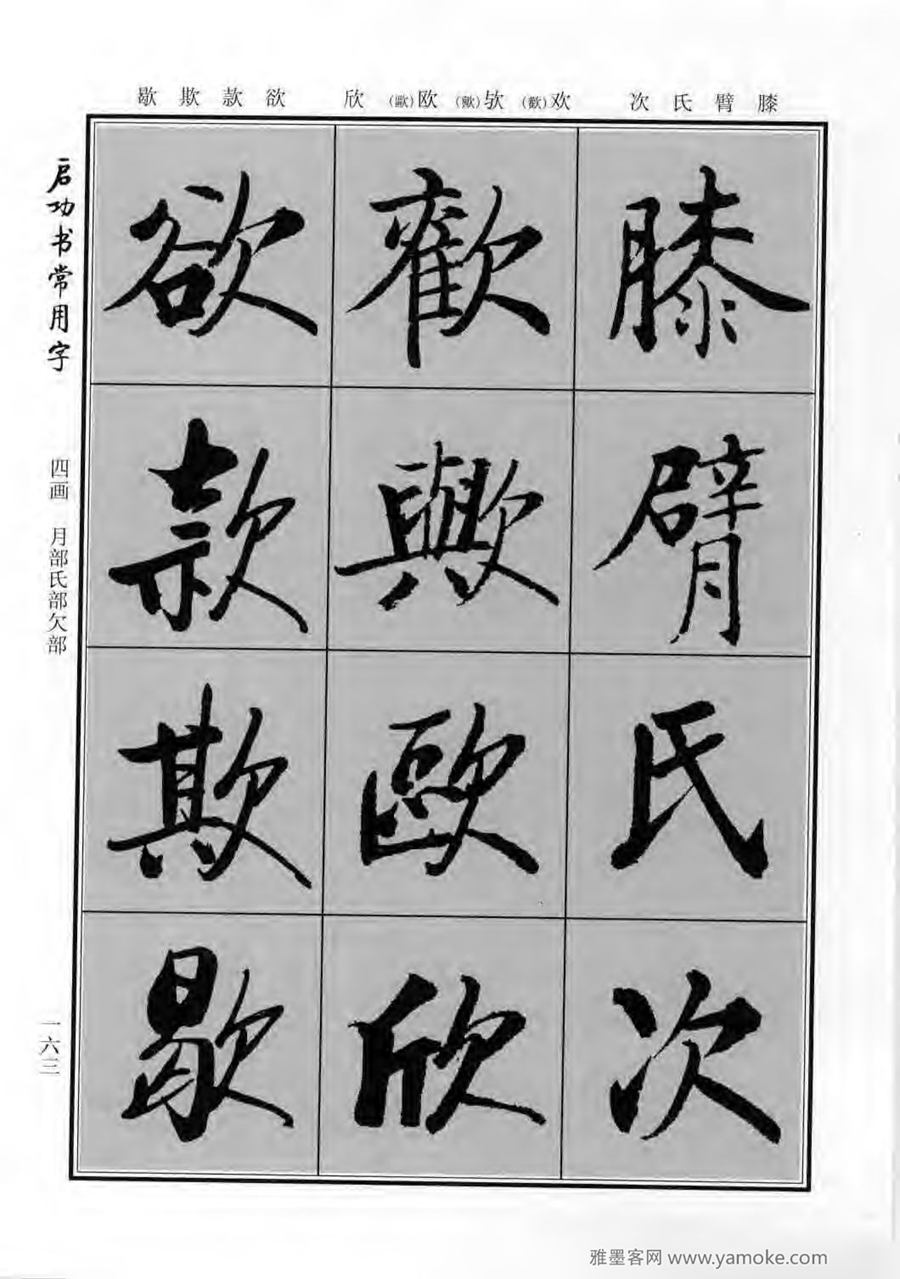 膝臂氏次 欢(歡)欤(歟)欧(歐)欣 欲款欺歇
膝臂氏次
歡歟歐欣
欲款欺歇
启功书常用字
四画 月部氏部欠部
一六三
雅墨客网 www.yamoke.com